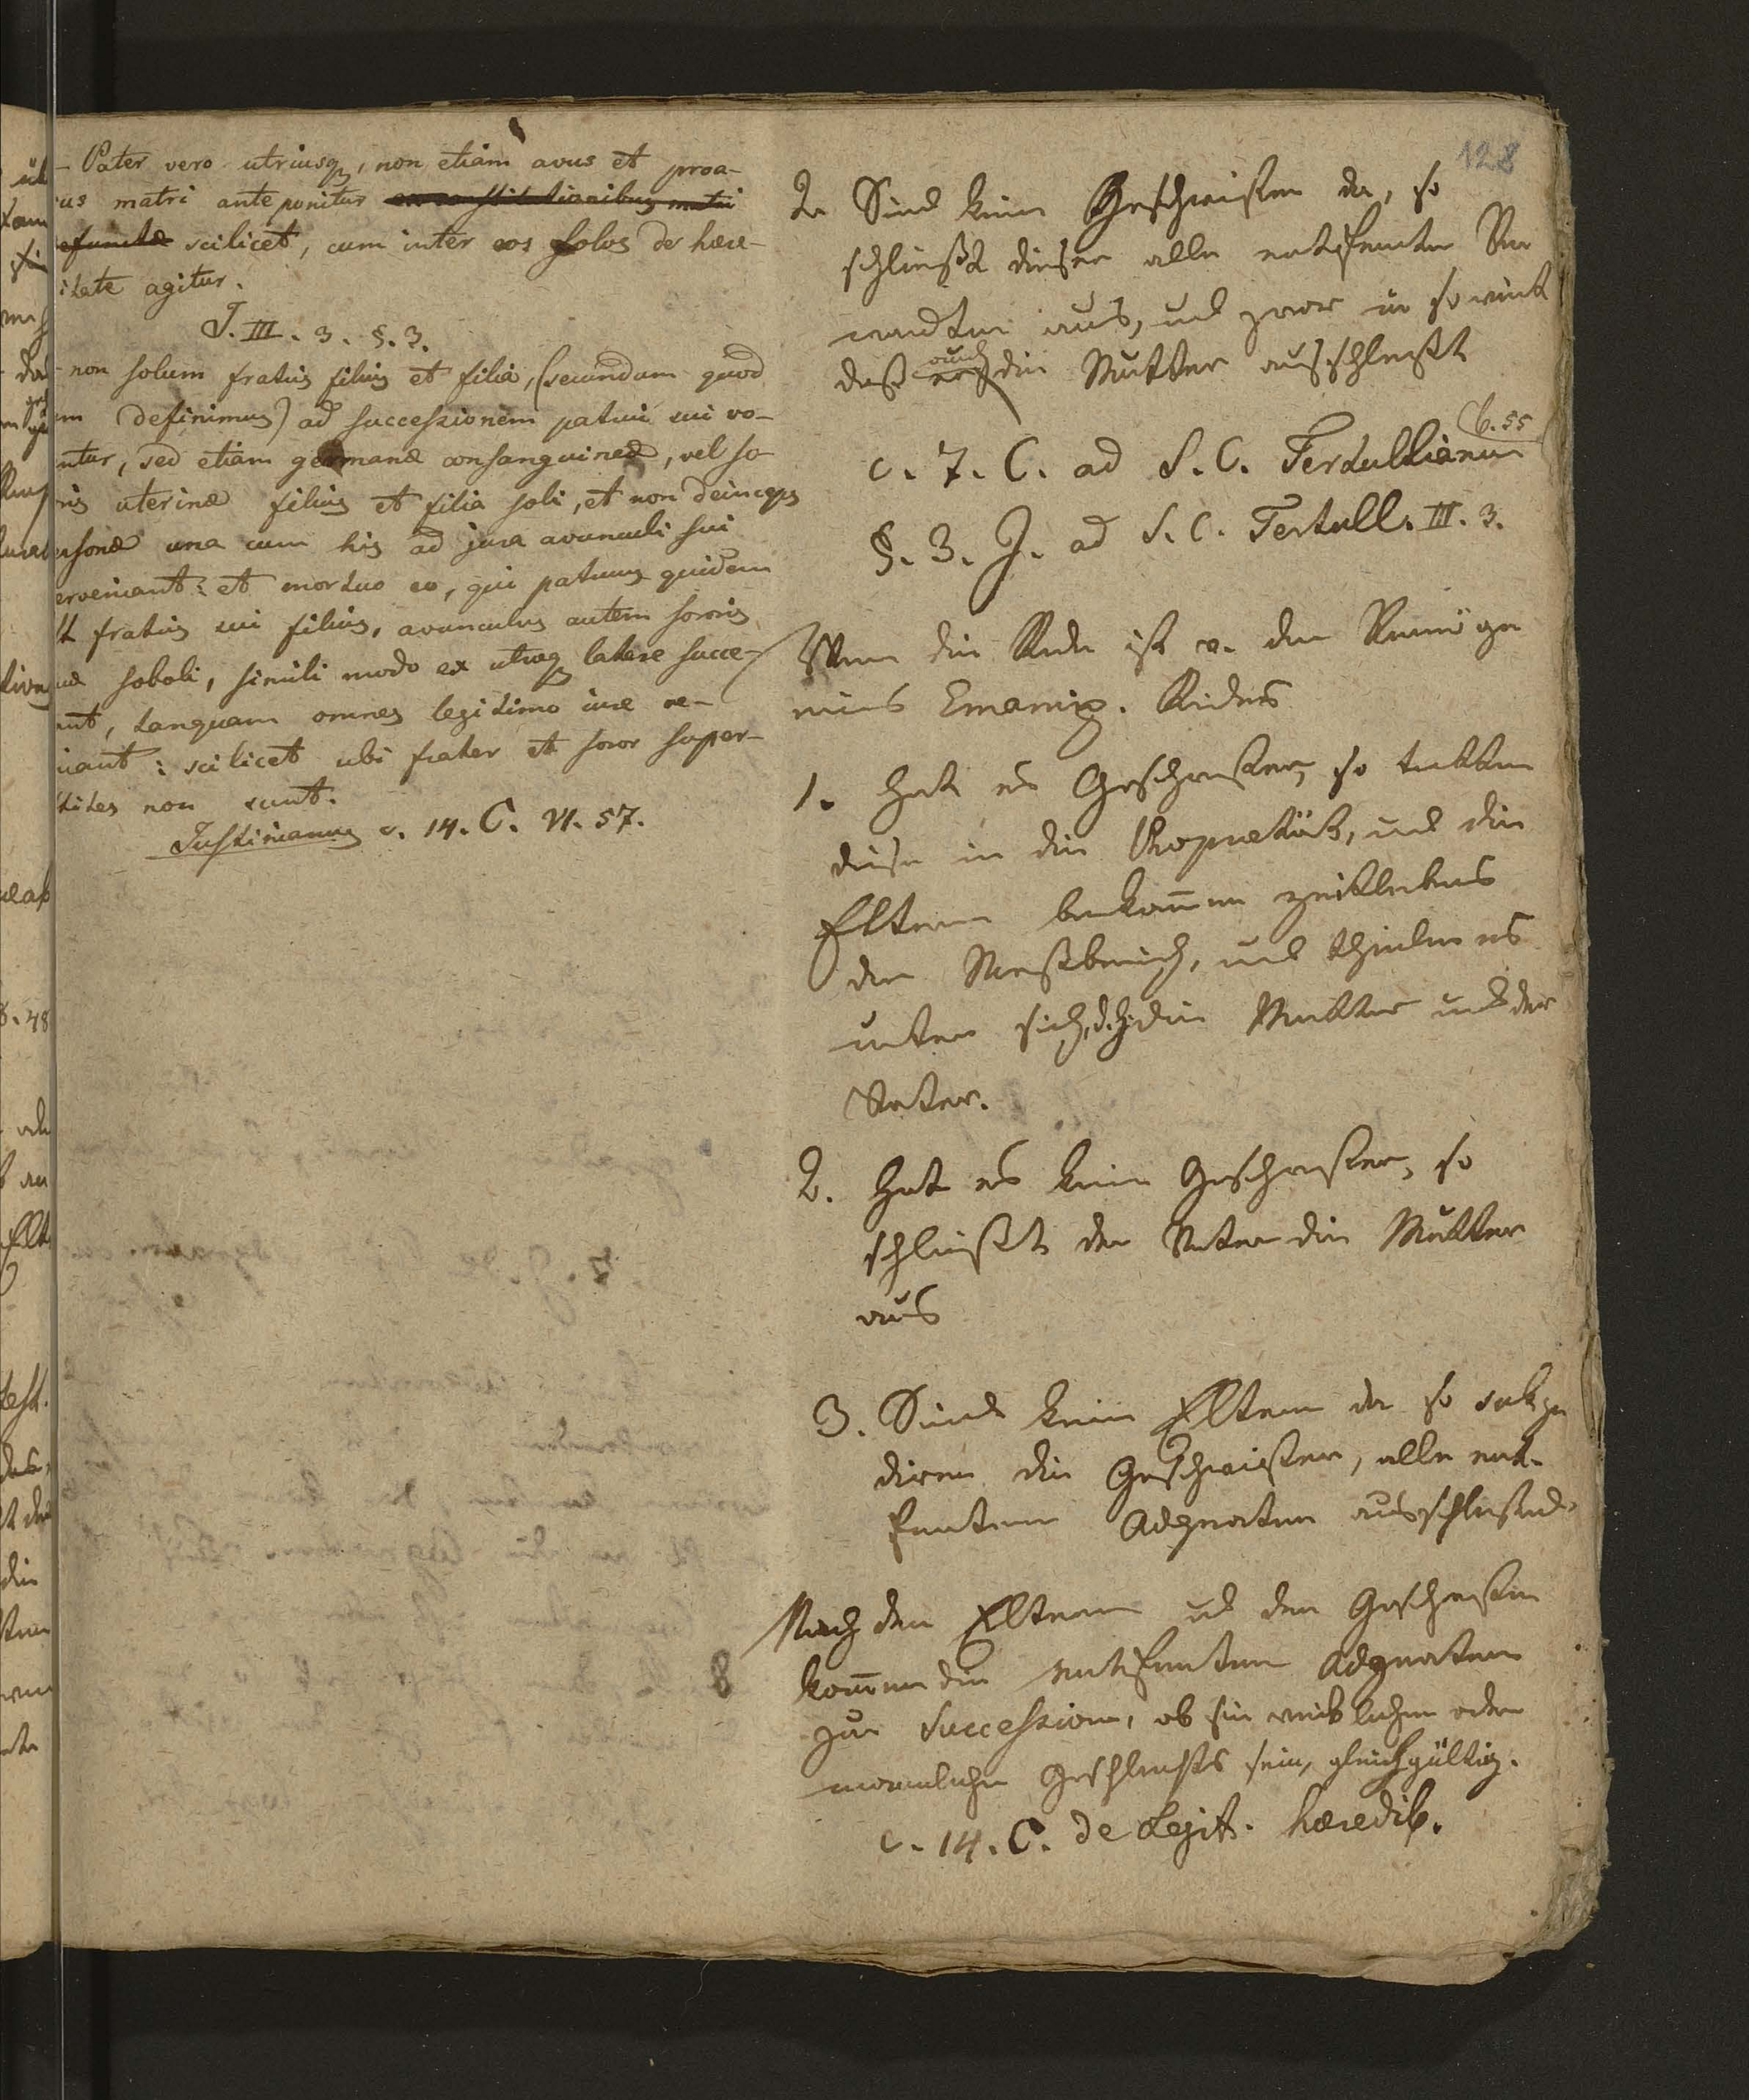 128
- Pater vero utriusq, non etiam avus et proa-
us matri anteponitur ex constitutionibus matri
efunctæ scilicet, cum inter eos solos de hære-
itate agitur.
J. III. 3. §. 3.
non solum fratris filius et filia, (secundum quod
m definimus) ad successionem patrui sui vo-
ntur, sed etiam germanæ consanguineæ, vel so-
ris uterinæ filius et filia soli, et non deinceps
rsonæ una cum his ad jura avunculi sui
erveniant: et mortuo eo, qui patruus quidem
t fratris sui filius, avunculus autem sororis
uæ soboli, simili modo ex utroq latere succe-
ant, tanquam omnes legitimo iure ve-
iant: scilicet ubi frater et soror super-
stites non sunt.
Justinianus c. 14. C. VI. 57.
2. Sind keine Geschwister da, so
schließt dieser alle entfernte Ver
wandten aus, und zwar in so weit
daß auch die Mutter ausschließt
c. 7. C. ad S. C. Tertullianum 6. 55
§. 3. J. ad S. C. Tertull. III. 3.
Wenn die Rede ist v. dem Vermögen
eines Emanzip. Kindes
1. Hat es Geschwister, so tretten
diese in die Proprietät, und die
Eltern bekom̄en zeitlebens
den Nießbrauch, und theilen es
unter sich, d. h. die Mutter und der
Vater.
2. Hat es keine Geschwister, so
schließt der Vater die Mutter
aus
3. Sind keine Eltern da so sukze
diren die Geschwister, alle ent-
fernteren Adgnaten ausschließend.
Nach den Eltern und den Geschwistern
kom̄en die entfernteren Adgnaten
zur Succession, ob sie weiblichen oder
männlichen Geschlechts sein, gleichgültig.
c. 14. C. de Legit. hæredib.